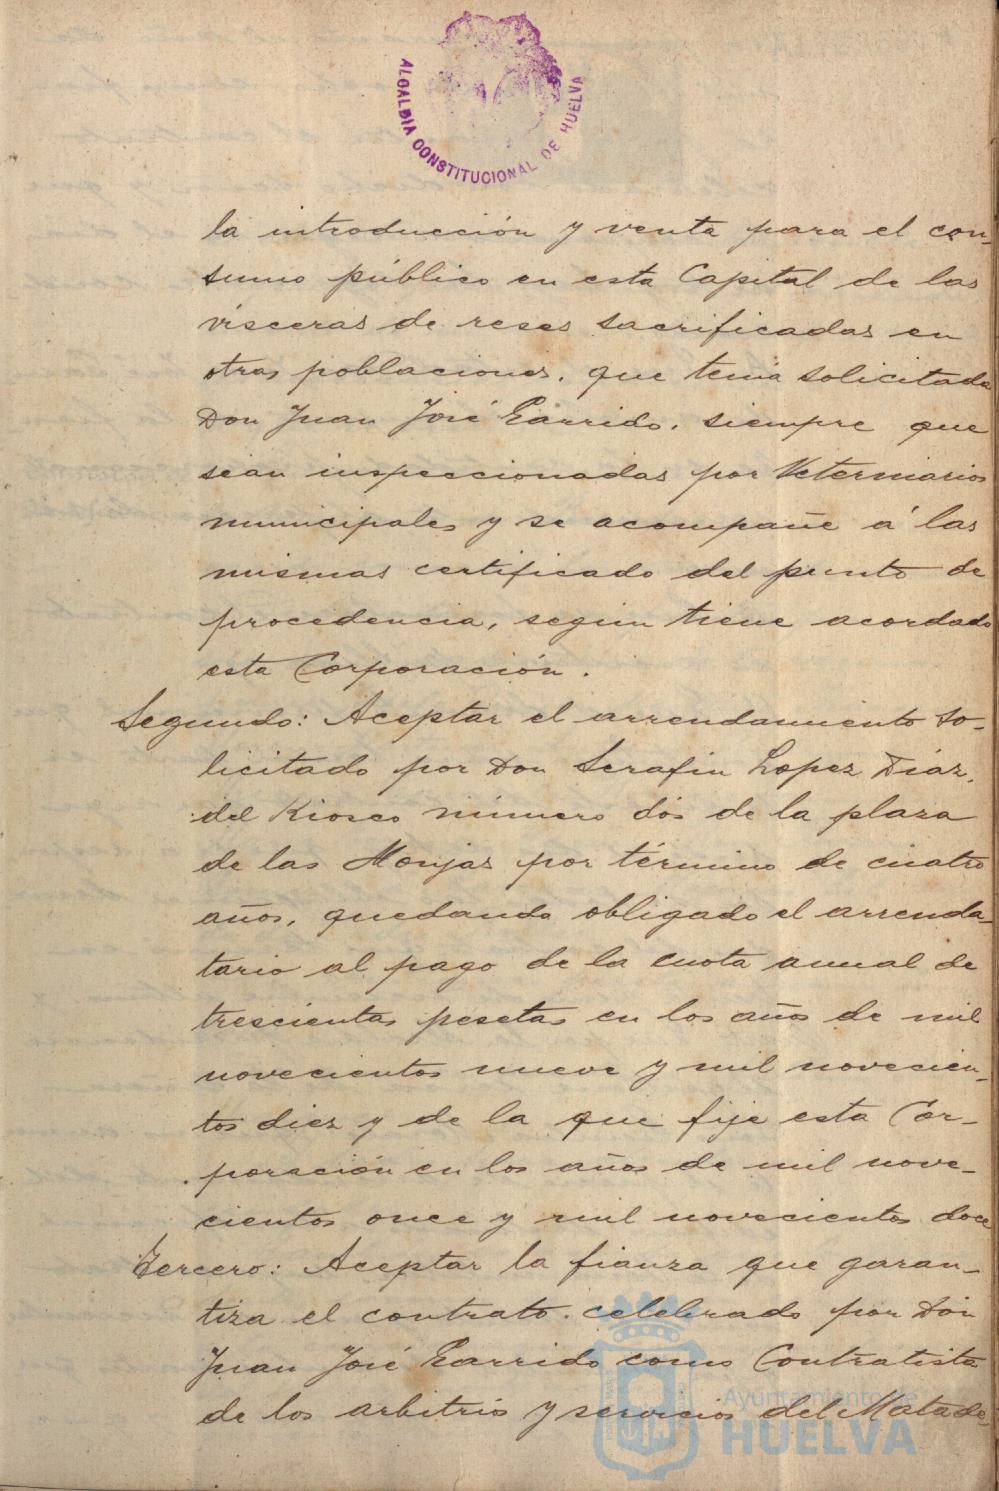 ALCALDIA CONSTITUCIONAL DE HUELVA
la introducción y venta para el con-
sumo público en esta Capital de las
vísceras de reses sacrificadas en
otras poblaciones. que tenia solicitada
Don Juan José Garrido. siempre que
sean inspeccionadas por Veterinarios
municipales y se acompañe á las
mismas certificado del punto de
procedencia, según tiene acordado
esta Corporación.
Segundo: Aceptar el arrendamiento so-
licitado por Don Serafin Lopez Diaz.
del Kiosco número dós de la plaza
de las Monjas por término de cuatro
años, quedando obligado el arrenda-
tario al pago de la cuota anual de
trescientas pesetas en los años de mil
novecientos nueve y mil novecien-
tos diez y de la que fije esta Cor-
poración en los años de mil nove-
cientos once y mil novecientos doce
Tercero: Aceptar la fianza que garan-
tiza el contrato. celebrado por Dón
Juan José Garrido como Contratista
de los arbitrios y servicios del Matade-
Ayuntamiento de
HUELVA